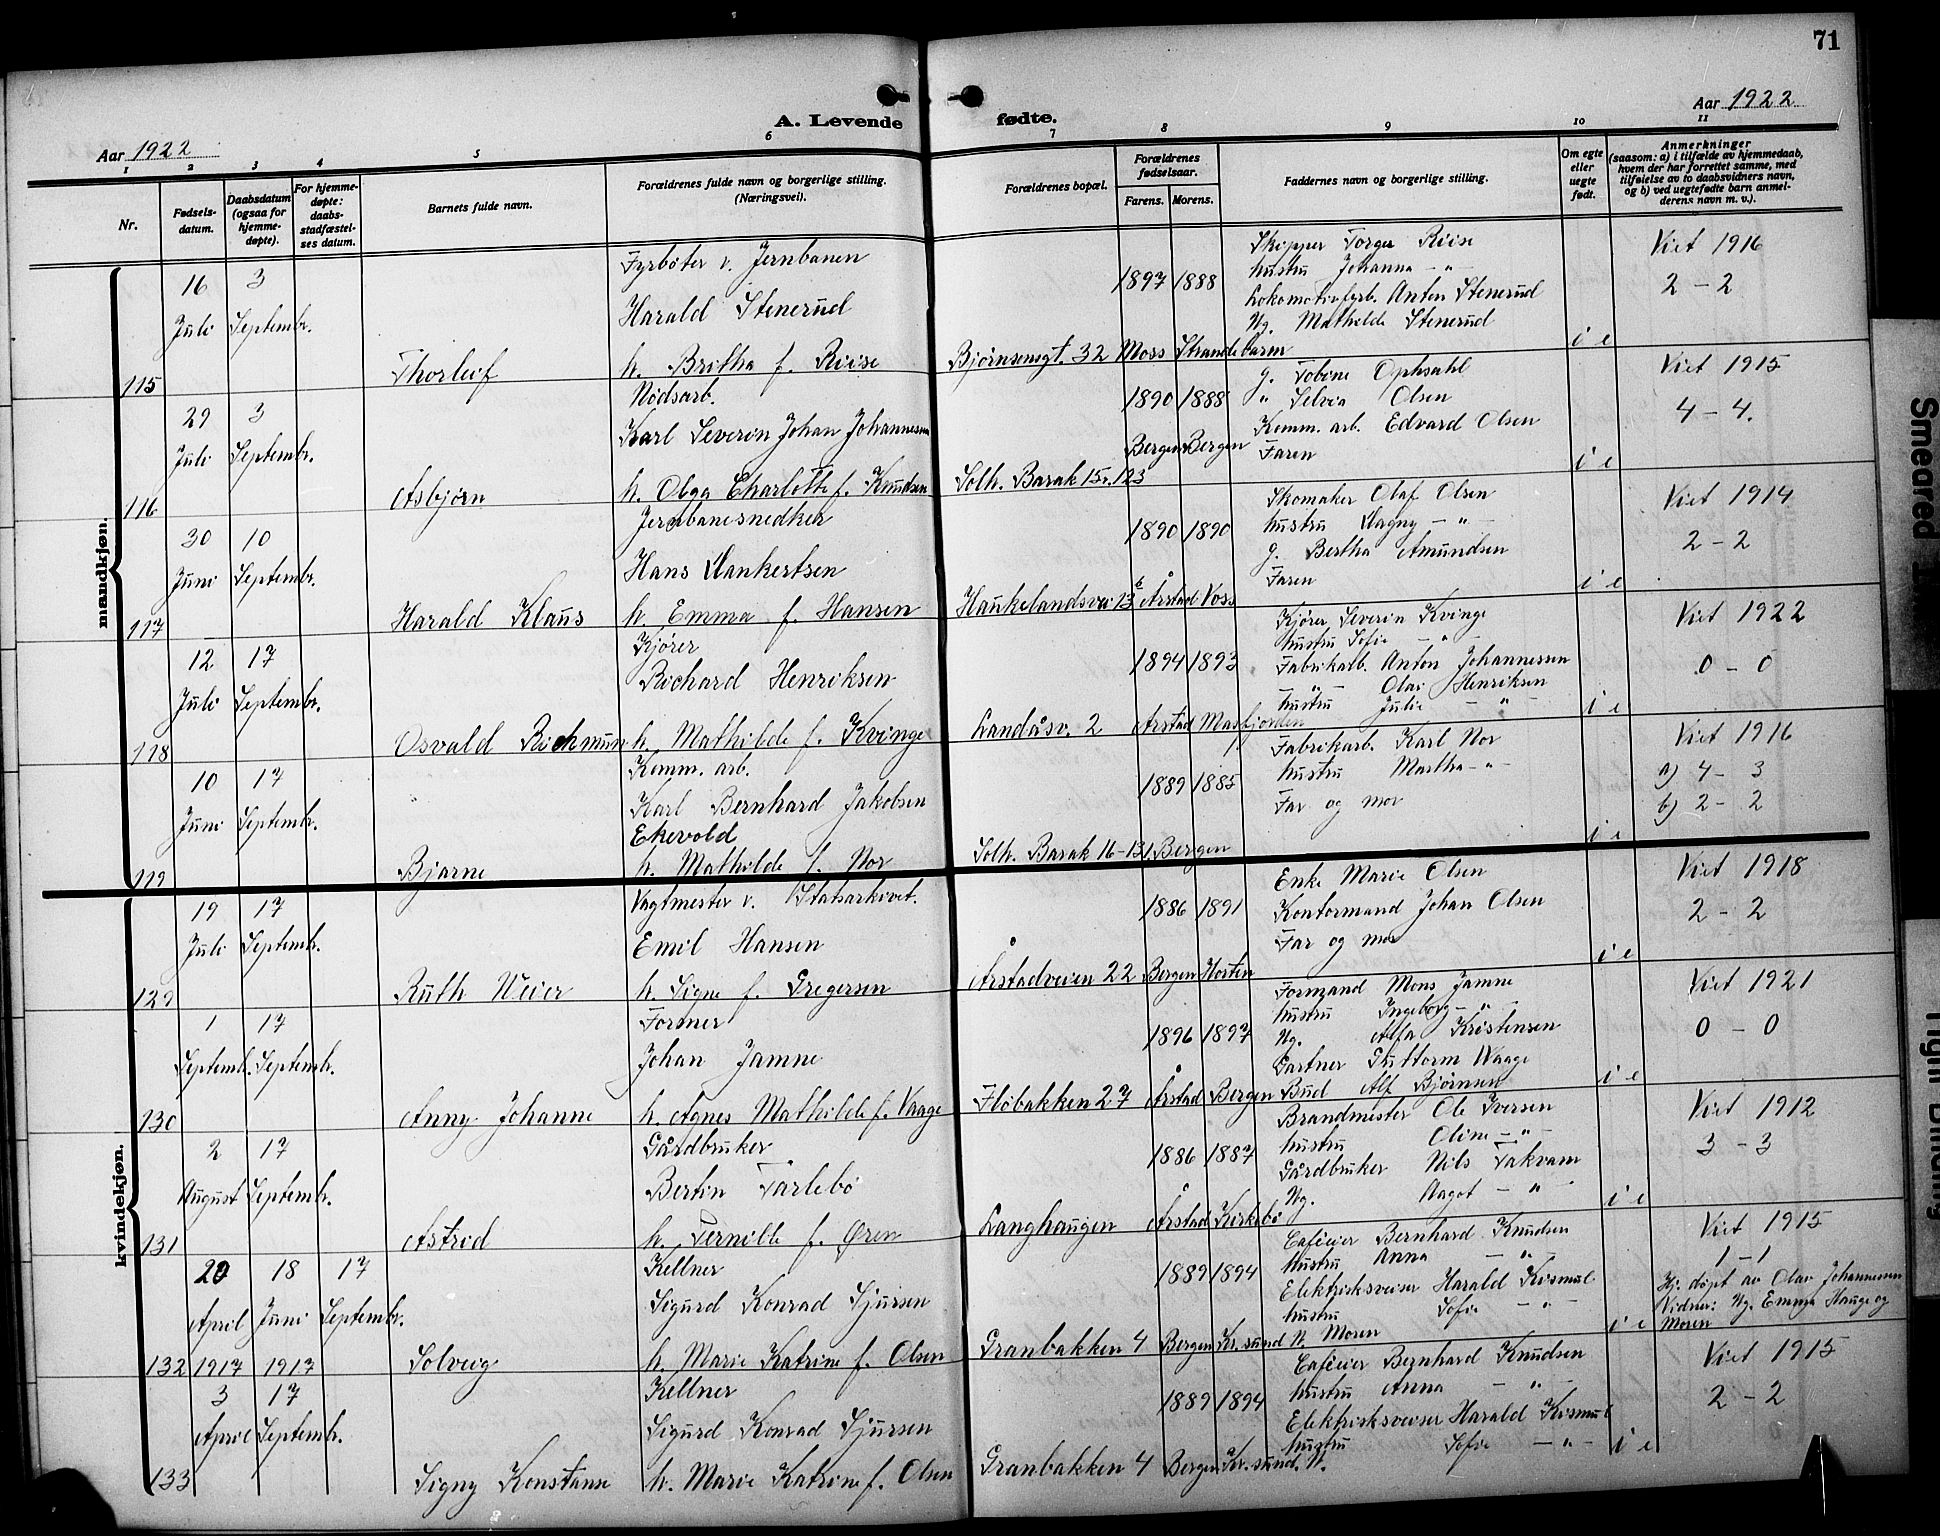 71
Aar 1922
A. Levende fødte.
Aar 1922
1 2 3 4 5 6 7 8 9 10 11
Nr.
Fødsels-datum.
Daabsdatum (ogsaa for hjemme-døpte).
For hjemme-døpte: daabs-stadfæstel-ses datum.
Barnets fulde navn.
Forældrenes fulde navn og borgerlige stilling. (Næringsvei).
Forældrenes bopæl.
Forældrenes fødselsaar.
Farens. Morens.
Faddernes navn og borgerlige stilling.
Om egte eller uegte født.
Anmerkninger
(saasom: a) i tilfælde av hjemmedaab, hvem der har forrettet samme, med tilføielse av to daabsvidners navn, og b) ved uegtefødte barn anmel-derens navn m. v.).
mandkjøn.
115
16 Juli
3 Septembr.
Thorleif
Fyrbøter v. Jernbanen
Harald Stenerud
h. Britha f. Riise
Bjørnsensgt. 32
1897 1888
Moss Strandebarm
Skipper Torger Riise
hustru Johanna - " -
Lokomotivfyrb. Anton Stenerud
Ug. Mathilde Stenerud
i e
Viet 1916
2 - 2
116
29 Juli
3 Septembr.
Asbjørn
Nødsarb.
Karl Severin Johan Johannesen
h. Olga Charlotte f. Knudsen
Solh. Barak 15v. 123
1890 1888
Bergen Bergen
g. Tobine Ophsahl
" Selvia Olsen
Komm. arb. Edvard Olsen
Faren
i e
Viet 1915
4 - 4.
117
30 Juni
10 Septembr.
Harald Klaus
Jernbanesnedker
Hans Vankertsen
h. Emma f. Hansen
Haukelandsvei 13 b
1890 1890
Årstad Voss
Skomaker Olaf Olsen
hustru Dagny - " -
g. Bertha Amundsen
Faren
i e
Viet 1914
2 - 2
118
12 Juli
17 Septembr.
Osvald Richmun
Kjører
Richard Henriksen
h. Mathilde f. Kvinge
Landåsv. 2
1894 1893
Årstad Masfjorden
Kjører Severin Kvinge
hustru Sofie - " -
Fabrikarb. Anton Johannessen
- " - Olav Henriksen
hustru Julie - " -
i e
Viet 1922
0 - 0
119
10 Juni
17 Septembr.
Bjarne
Komm. arb.
Karl Bernhard Jakobsen
Ekevold
h. Mathilde f. Nor
Solh. Barak 16 - 131
1889 1885
Bergen
Fabrikarb. Karl Nor
hustru Martha - " -
Far og mor
i e
Viet 1916
a) 4 - 3
b) 2 - 2
kvindekjøn.
129
19 Juli
17 Septembr.
Ruth Weier
Vagtmester v. Statsarkivet.
Emil Hansen
h. Signe f. Gregersen
Årstadveien 22
1886 1891
Bergen Horten
Enke Marie Olsen
Kontormand Johan Olsen
Far og mor
i e
Viet 1918
2 - 2
130
1 Septemb.
17 Septembr.
Anny Johanne
Former
Johan Jamne
h. Agnes Mathilde f. Vaage
Fløbakken 27
1896 1897
Årstad Bergen
Formand Mons Jamne
hustru Ingeborg - " -
Ug. Alfa Kristensen
Gartner Guttorm Waage
Bud Alf Bjørnsen
i e
Viet 1921
0 - 0
131
2 August
17 Septembr.
Astrid
Gårdbruker
Bertin Tarlebø
h. Pernille f. Øren
Langhaugen
1886 1887
Årstad Kirkebø
Brandmester Ole Iversen
hustru Oline - " -
Gårdbruker Nils Takvam
Ug. Aagot - " -
i e
Viet 1912
3 - 3
132
20 April 1917
18 Juni 1917
17 Septembr.
Solveig
Kellner
Sigurd Konrad Sjursen
h. Marie Katrine f. Olsen
Granbakken 4
1889 1894
Bergen Kr.sund N.
Caféeier Bernhard Knudsen
hustru Anna - " -
Elektriskveiser Harald Kismul
hustru Sofie - " -
Moren
i e
Viet 1915
1 - 1
Hj. døpt av Olav Johannesen
Vidner: Ug. Emma Hauge og
Moren
133
3 April
17 Septembr.
Signy Konstanse
Kellner
Sigurd Konrad Sjursen
h. Marie Katrine f. Olsen
Granbakken 4
1889 1894
Bergen Kr.sund. N.
Caféeier Bernhard Knudsen
hustru Anna - " -
Elektriskveiser Harald Kismul
hustru Sofie - " -
i e
Viet 1915
2 - 2
Smeared
Tight Binding